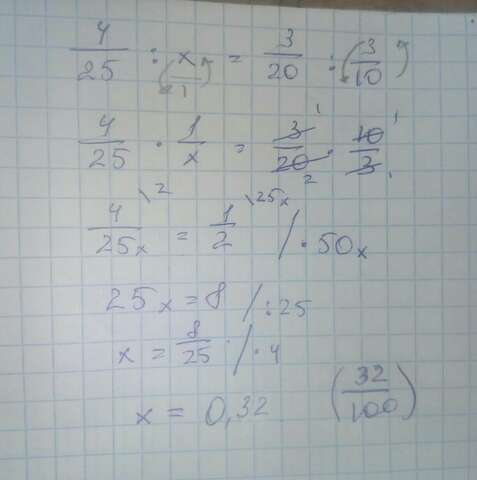 4/25 : (x/1) = 3/20 : (3/10)
4/25 · 1/x = 3/20 · 10/3 1 1 2 1
4/25x \2 = 1/2 \25x / · 50x
25x = 8 / : 25
x = 8/25 / · 4
x = 0,32 (32/100)